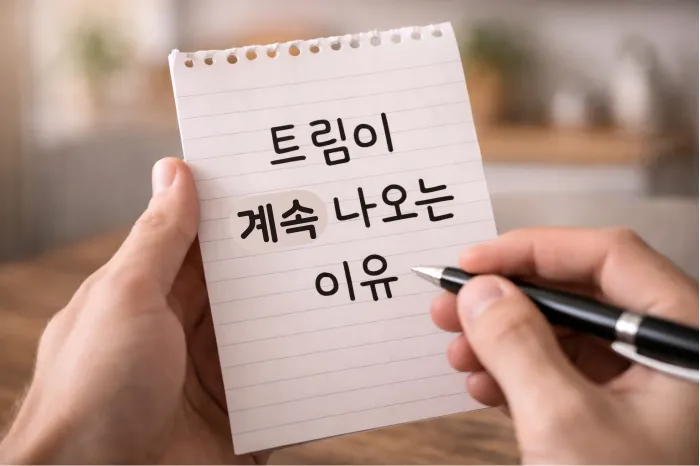 트림이
계속 나오는
이유